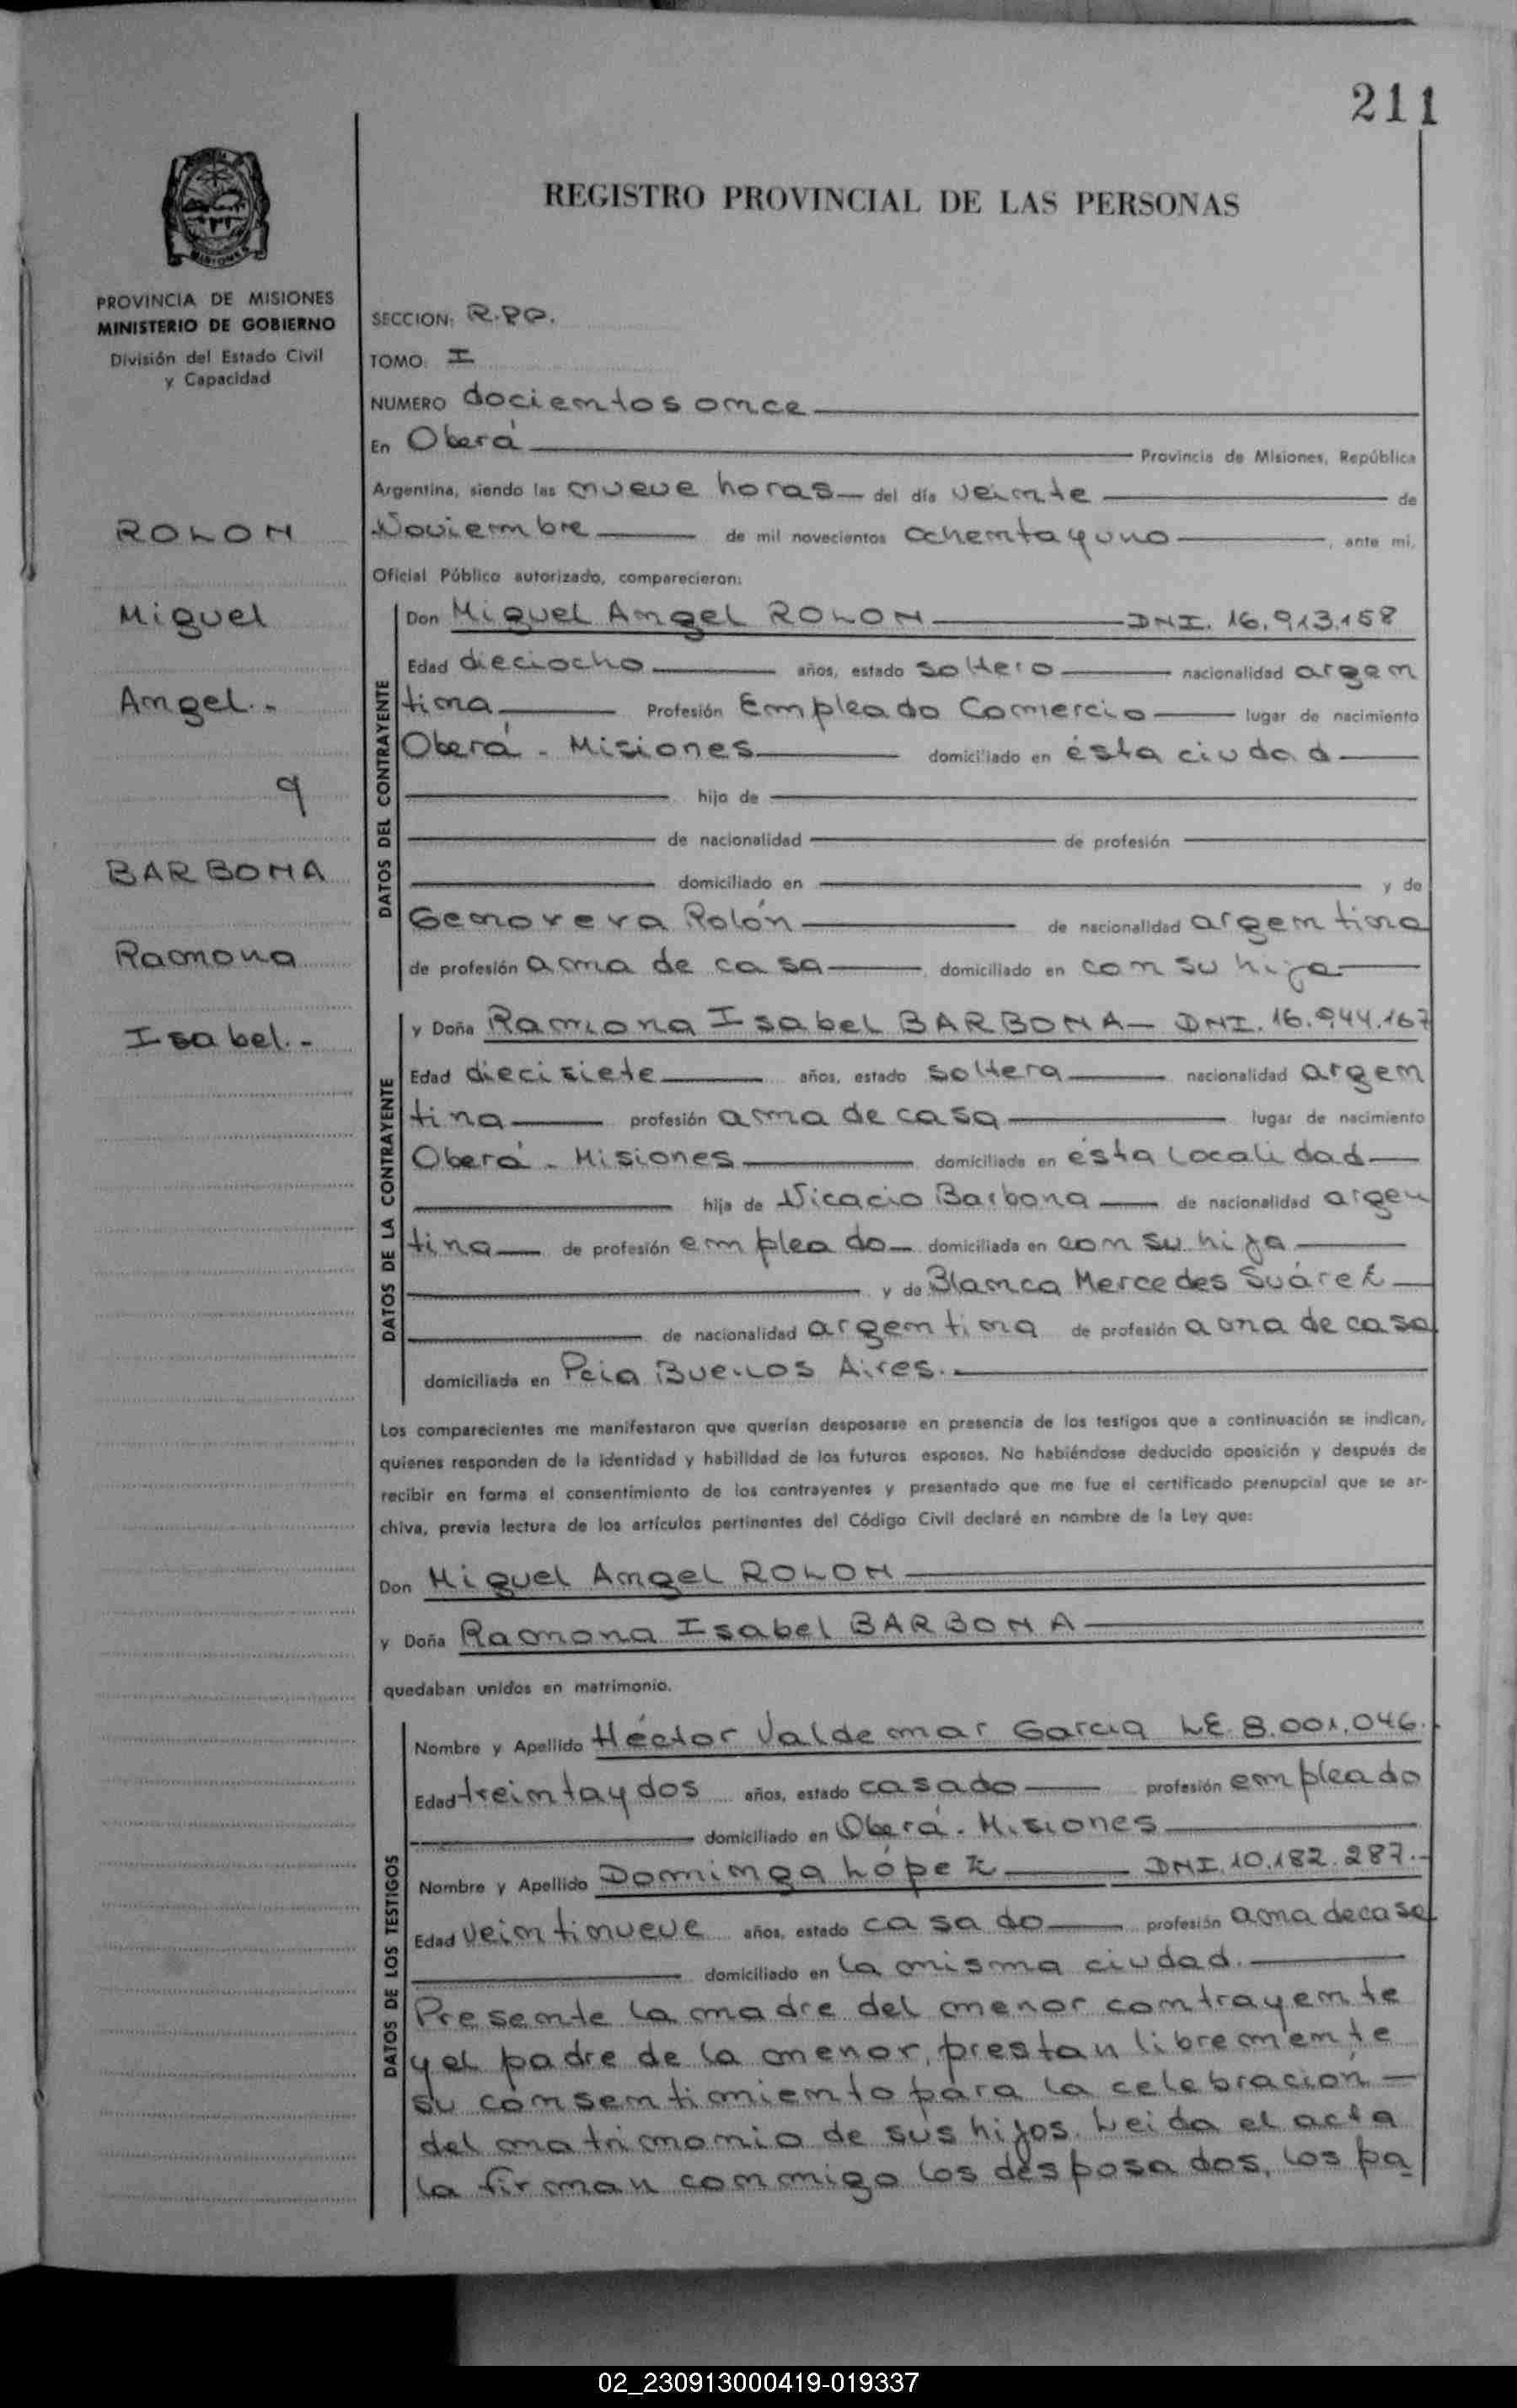 211
REGISTRO PROVINCIAL DE LAS PERSONAS
MISIONES
PROVINCIA DE MISIONES
MINISTERIO DE GOBIERNO
División del Estado Civil
y Capacidad
ROLON
Miguel
Angel.-
y
BARBONA
Ramona
Isabel.-
SECCION: R.PO.
TOMO: I
NUMERO docientos once
En Oberá Provincia de Misiones, República
Argentina, siendo las nueve horas del día veinte de
Noviembre de mil novecientos ochenta y uno, ante mi,
Oficial Público autorizado, comparecieron:
DATOS DEL CONTRAYENTE
Don Miguel Angel ROLON DNI. 16.913.158
Edad dieciocho años, estado soltero nacionalidad argen
tina Profesión Empleado Comercio lugar de nacimiento
Oberá - Misiones domiciliado en ésta ciudad
hijo de
de nacionalidad de profesión
domiciliado en y de
Genoveva Rolón de nacionalidad argentina
de profesión ama de casa, domiciliado en con su hijo
DATOS DE LA CONTRAYENTE
y Doña Ramona Isabel BARBONA - DNI. 16.944.167
Edad diecisiete años, estado soltera nacionalidad argen
tina profesión ama de casa lugar de nacimiento
Oberá - Misiones domiciliada en ésta localidad
hija de Nicacio Barbona de nacionalidad argen
tina de profesión empleado domiciliada en con su hija
y de Blanca Mercedes Suárez
de nacionalidad argentina de profesión ama de casa
domiciliada en Pcia Buenos Aires.
Los comparecientes me manifestaron que querían desposarse en presencia de los testigos que a continuación se indican,
quienes responden de la identidad y habilidad de los futuros esposos. No habiéndose deducido oposición y después de
recibir en forma el consentimiento de los contrayentes y presentado que me fue el certificado prenupcial que se ar-
chiva, previa lectura de los artículos pertinentes del Código Civil declaré en nombre de la Ley que:
Don Miguel Angel ROLON
y Doña Ramona Isabel BARBONA
quedaban unidos en matrimonio.
DATOS DE LOS TESTIGOS
Nombre y Apellido Héctor Valdemar Garcia LE. 8.001.046.
Edad treinta y dos años, estado casado profesión empleado
domiciliado en Oberá - Misiones
Nombre y Apellido Dominga López DNI. 10.182.287.-
Edad veintinueve años, estado casado profesión ama de casa
domiciliado en la misma ciudad.
Presente la madre del menor contrayente
y el padre de la menor, prestan libremente
su consentimiento para la celebración
del matrimonio de sus hijos. Leida el acta
la firman conmigo los desposados, los pa
02_230913000419-019337